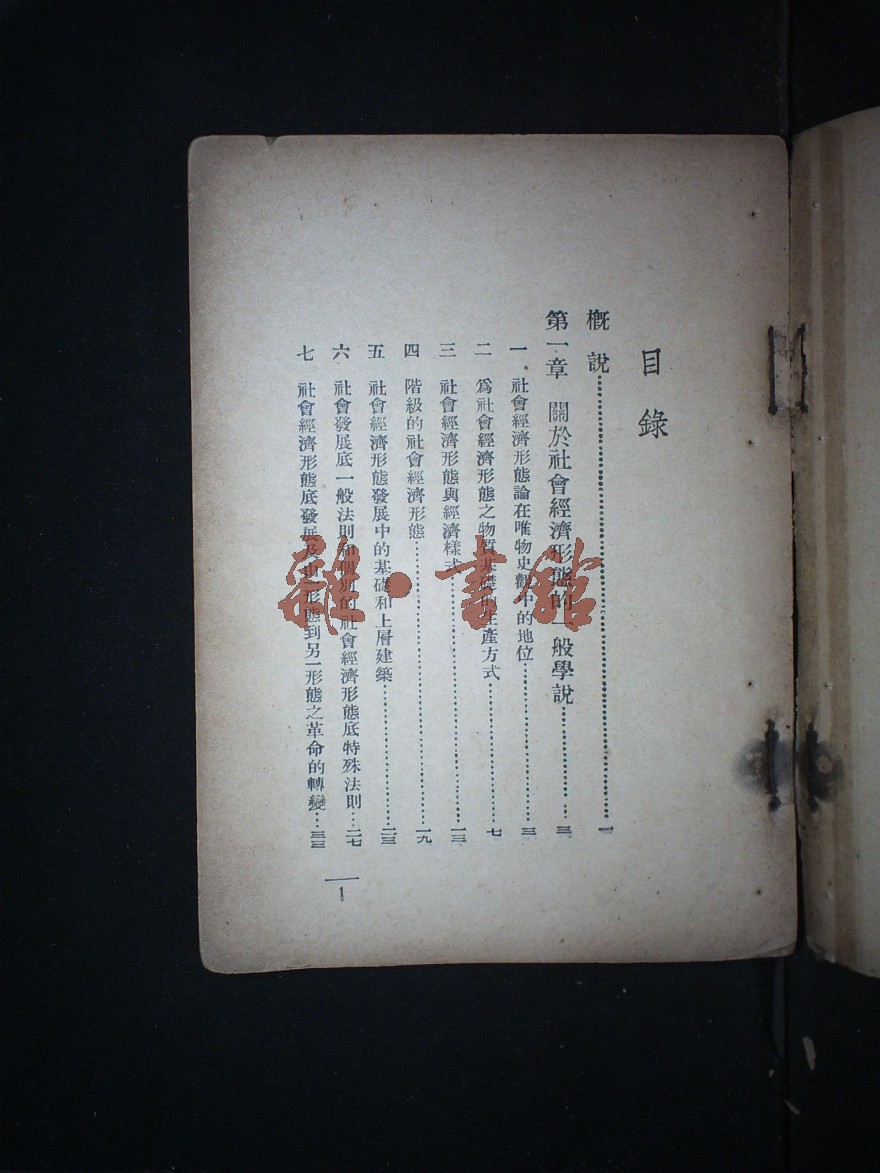 目錄
概說……一
第一章 關於社會經濟形態的一般學說……三
一 社會經濟形態論在唯物史觀中的地位……三
二 爲社會經濟形態之物質基礎的生產方式……七
三 社會經濟形態與經濟樣式……一三
四 階級的社會經濟形態……一九
五 社會經濟形態發展中的基礎和上層建築……二三
六 社會發展底一般法則和個別的社會經濟形態底特殊法則……二七
七 社會經濟形態底發展及由一形態到另一形態之革命的轉變……三三
1
雜·書館